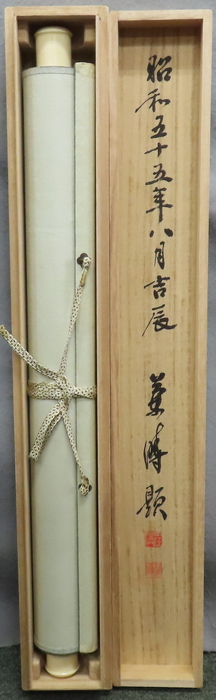 昭和五十五年八月吉辰
題